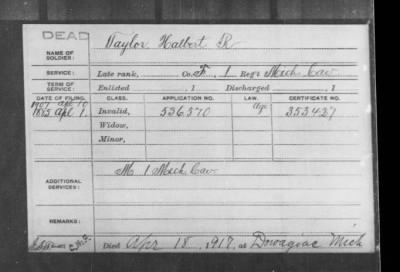 DEAD
NAME OF SOLDIER: Taylor, Halbert R
SERVICE: Late rank, Co. F, 1 Reg't Mich Cav.
TERM OF SERVICE: Enlisted , 1 Discharged , 1
DATE OF FILING. CLASS. APPLICATION NO. LAW. CERTIFICATE NO.
1907 Apl 10
1885 Apl 7. Invalid, 536570 Age 353427
Widow,
Minor,
ADDITIONAL SERVICES: M 1 Mich Cav
REMARKS:
Died Apr 18, 1917, at Dowagiac Mich